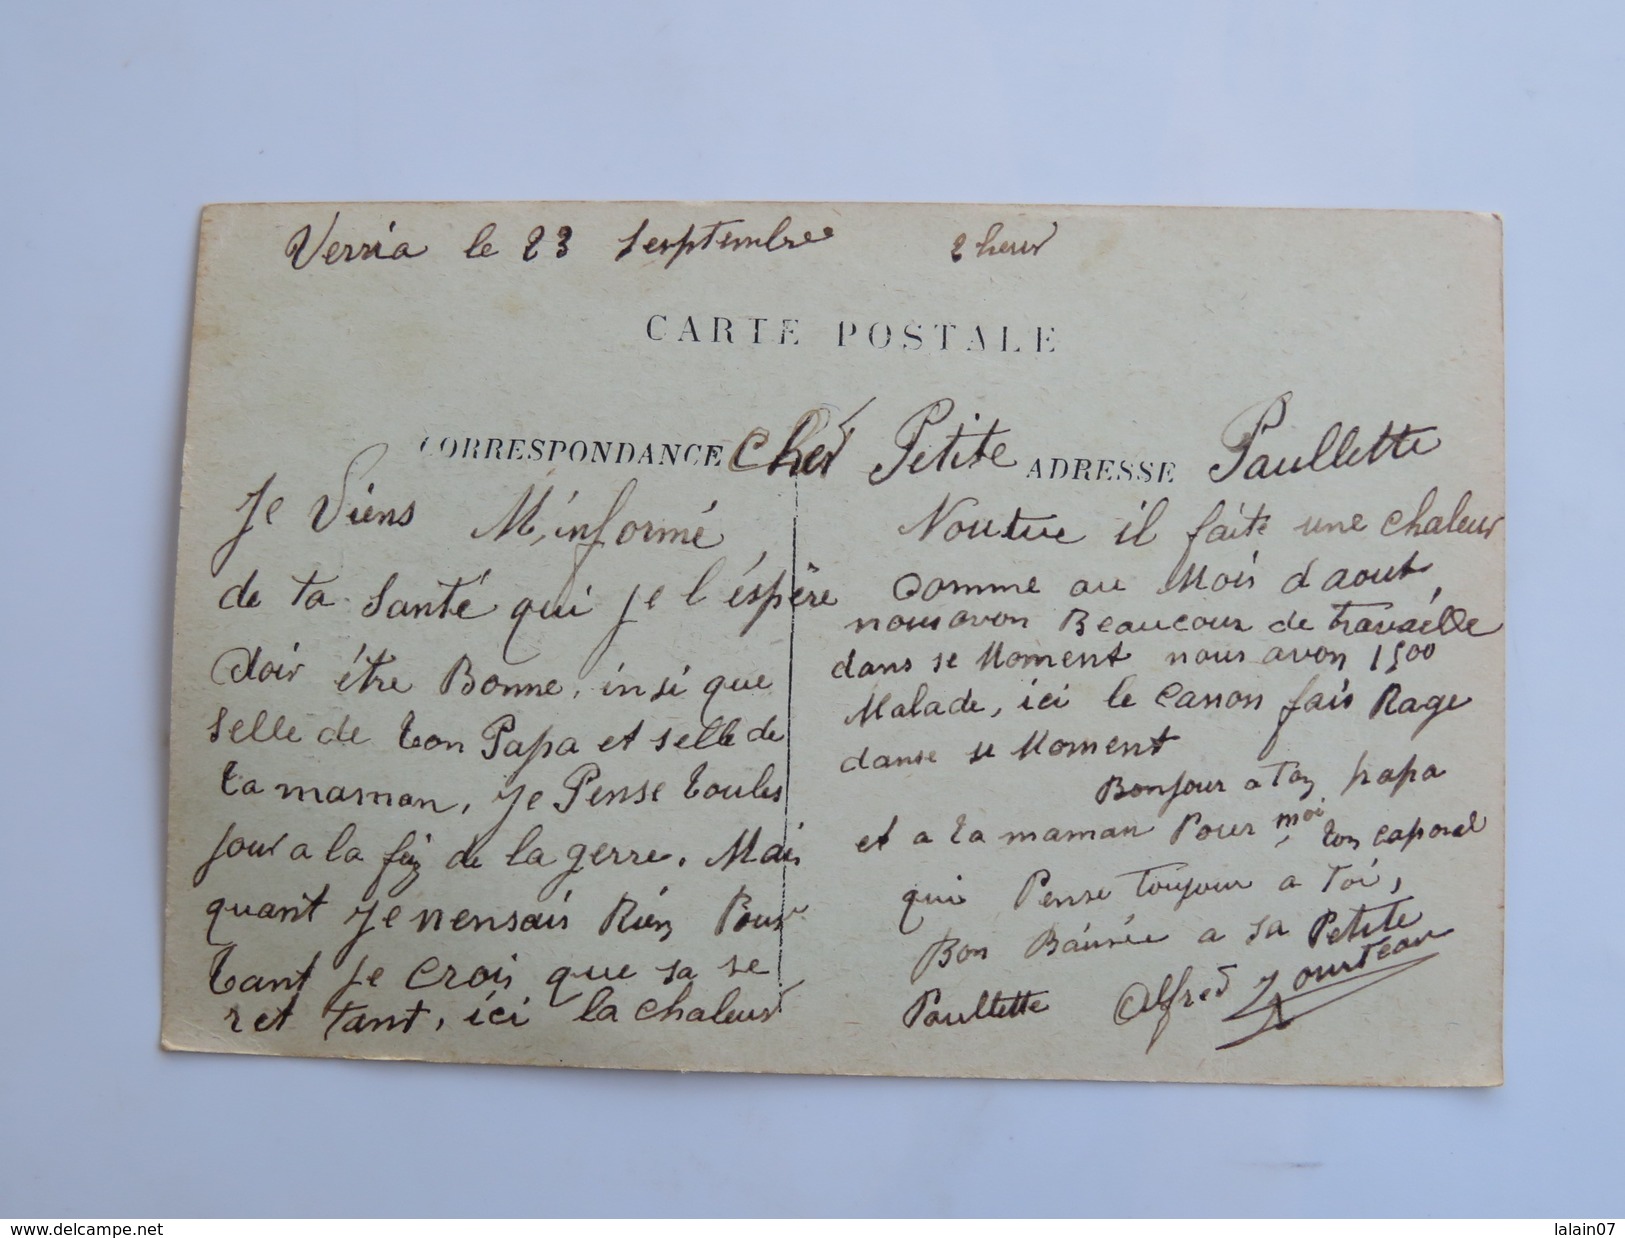 Verria le 23 septembre 2 heur
CARTE POSTALE
CORRESPONDANCE
ADRESSE
Cher Petite Paullette
Je Viens M'informé
de ta santé qui je l'éspère
doir être Bonne, insi que
selle de ton Papa et selle de
ta maman, je Pense toules
jour a la fin de la gerre. Mais
quant je nensais Rien Pour
tant je crois que sa se
ret tant, ici la chaleur
Noutue il faite une chaleur
comme au Mois d'aout,
nous avon Beaucour de travaille
dans se Moment nous avon 1500
Malade, ici le canon fais Rage
danse se Moment
Bonjour a ton papa
et a ta maman Pour moi, ton caporal
qui Pense toujour a toi,
Bon Baisée a sa Petite
Paullette Alfred
www.delcampe.net
lalain07